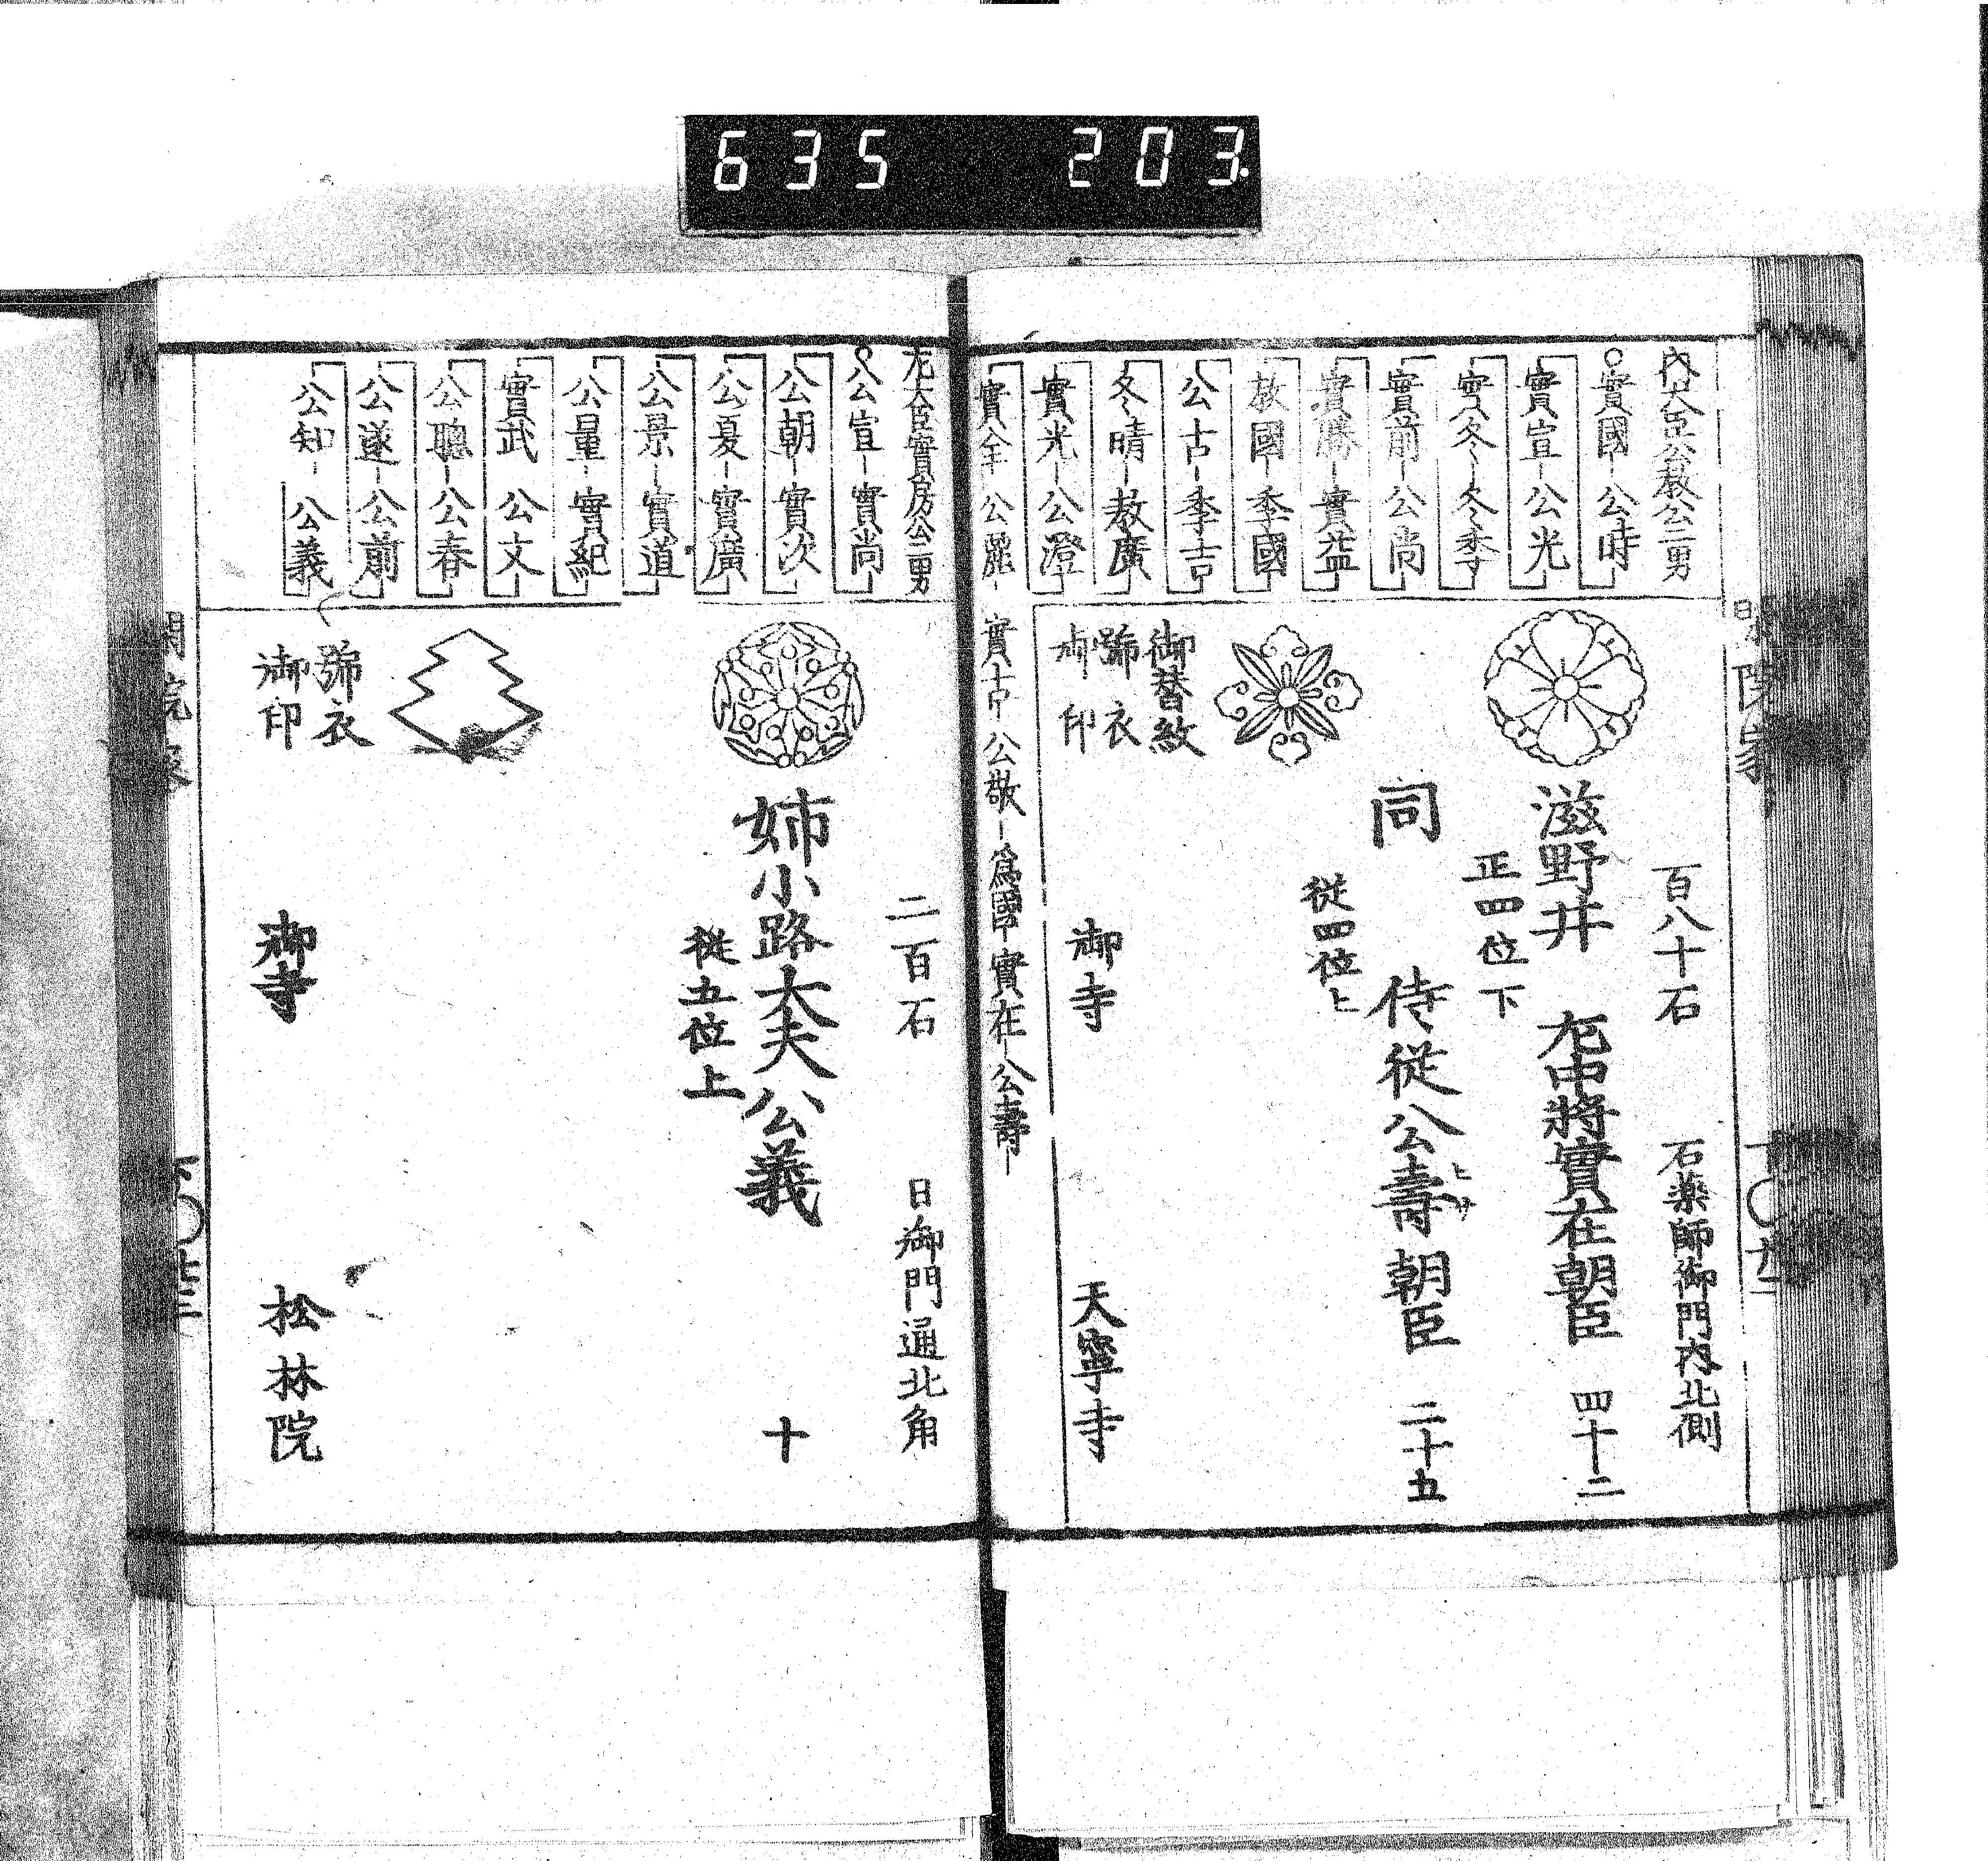 635 203
内大臣公教公二男
實國 公時
實宣 公光
實冬 冬季
實前 公尚
實勝 實益
教國 季國
公古 季吉
冬晴 教廣
實光 公澄
實全 公麗 實古 公敬 為國 實在 公壽
百八十石 石薬師御門内北側
滋野井 左中將實在朝臣 四十二
正四位下
同 侍從公壽朝臣 二十五
従四位上
御替紋
號衣
御印
御寺 天寧寺
左大臣實房公二男
公宣 實尚
公朝 實次
公夏 實廣
公景 實道
公量 實紀
實武 公文
公聰 公春
公遂 公前
公知 公義
二百石 日御門通北角
姉小路大夫公義 十
従五位上
號衣
御印
御寺 松林院